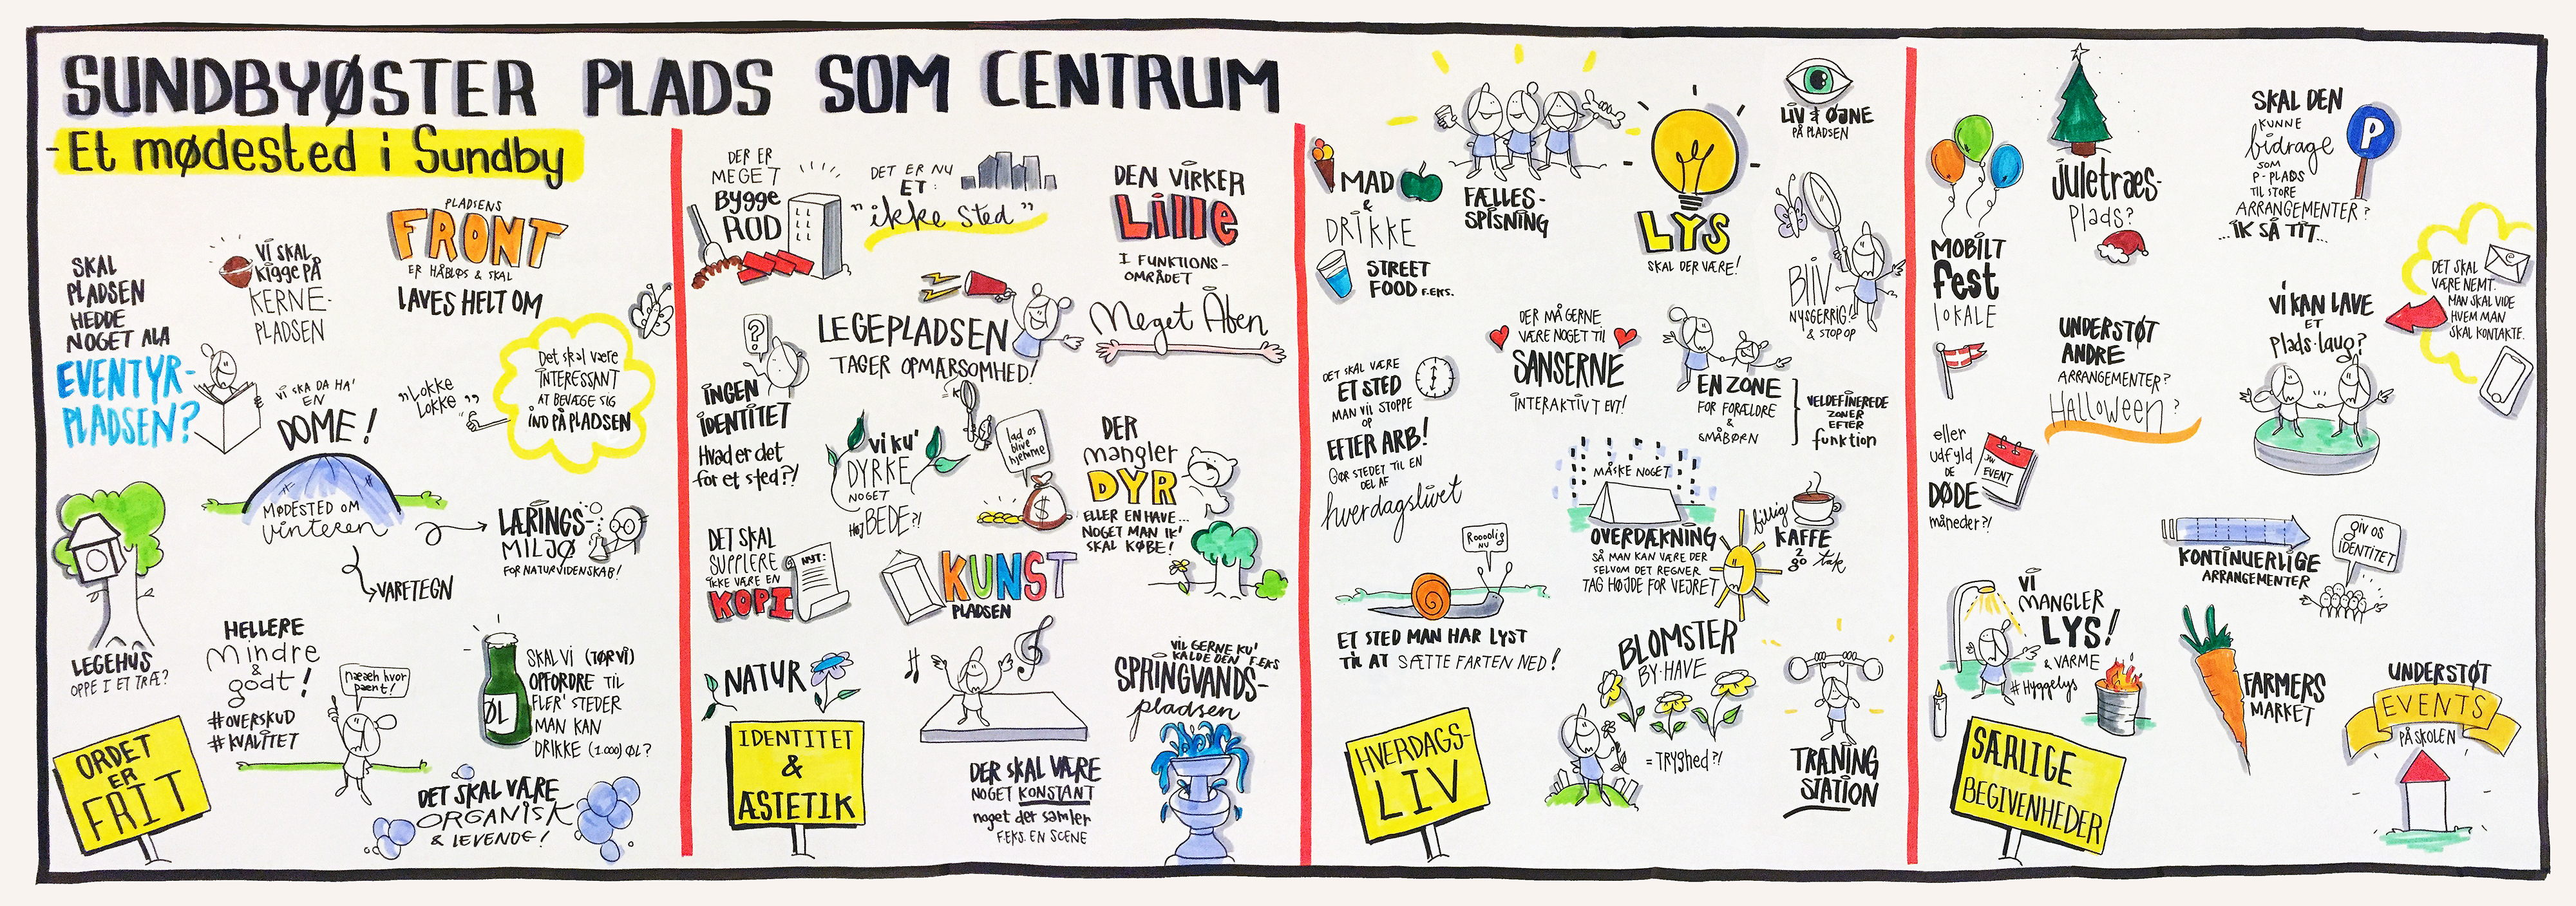 SUNDBYØSTER PLADS SOM CENTRUM
- Et mødested i Sundby
SKAL
PLADSEN
HEDDE
NOGET ALA
EVENTYR-
PLADSEN?
VI SKAL
Kigge PÅ
KERNE-
PLADSEN
PLADSENS
FRONT
ER HÅBLØS & SKAL
LAVES HELT OM
VI SKA DA HA'
EN
DOME!
MØDESTED OM
vinteren
"LOKKE
LOKKE"
Det skal være
INTERESSANT
AT BEVÆGE SIG
IND PÅ PLADSEN
LÆRINGS-
MILJØ
FOR NATURVIDENSKAB!
VARETEGN
LEGEHUS
OPPE I ET TRÆ?
HELLERE
Mindre
&
godt!
#OVERSKUD
#KVALITET
næeh hvor
pænt!
ØL
SKAL VI (TØR VI)
OPFORDRE TIL
FLER' STEDER
MAN KAN
DRIKKE (1.000) ØL?
DET SKAL VÆRE
ORGANISK
& LEVENDE!
ORDET
ER
FRIT
DER ER
MEGET
Bygge
ROD
DET ER NU
ET:
"ikke sted"
DEN VIRKER
Lille
I FUNKTIONS-
OMRÅDET
Meget Åben
LEGEPLADSEN
TAGER OPMÆRSOMHED!
?
INGEN
IDENTITET
Hvad er det
for et sted?!
VI KU'
DYRKE
NOGET
HØJBEDE?!
lad os
blive
hjemme
$
DER
mangler
DYR
ELLER EN HAVE...
NOGET MAN IK'
SKAL KØBE!
DET SKAL
SUPPLERE
IKKE VÆRE EN
KOPI
NYT:
KUNST
PLADSEN
NATUR
VIL GERNE KU'
KALDE DEN F.EKS
SPRINGVANDS-
pladsen
DER SKAL VÆRE
NOGET KONSTANT
noget der samler
F.EKS. EN SCENE
IDENTITET
&
ÆSTETIK
MAD
&
DRIKKE
STREET
FOOD F.EKS.
FÆLLES-
SPISNING
LYS
SKAL DER VÆRE!
LIV & ØJNE
PÅ PLADSEN
BLIV
NYSGERRIG!
& STOP OP
DET SKAL VÆRE
ET STED
MAN VIL STOPPE
OP
EFTER ARB!
GØR STEDET TIL EN
DEL AF
hverdagslivet
DER MÅ GERNE
VÆRE NOGET TIL
SANSERNE
INTERAKTIVT EVT!
EN ZONE
FOR FORÆLDRE
&
SMÅBØRN
VELDEFINEREDE
ZONER
EFTER
funktion
MÅSKE NOGET
OVERDÆKNING
SÅ MAN KAN VÆRE DER
SELVOM DET REGNER
TAG HØJDE FOR VEJRET
billig
KAFFE
2
go
tak
Rooolig
NU
ET STED MAN HAR LYST
TIL AT SÆTTE FARTEN NED!
BLOMSTER
BY-HAVE
= TRYGHED?!
TRÆNING
STATION
HVERDAGS-
LIV
MOBILT
fest
LOKALE
juletræs-
Plads?
SKAL DEN
KUNNE
bidrage
SOM
P-PLADS
TIL STORE
ARRANGEMENTER?
...IK SÅ TIT...
P
DET SKAL
VÆRE NEMT.
MAN SKAL VIDE
HVEM MAN
SKAL KONTAKTE.
VI KAN LAVE
ET
plads-laug?
UNDERSTØT
ANDRE
ARRANGEMENTER?
Halloween?
eller
udfyld
DE
DØDE
måneder?!
EVENT
KONTINUERLIGE
ARRANGEMENTER
giv os
IDENTITET
VI
MANGLER
LYS!
& VARME
#Hyggelys
FARMERS
MARKET
UNDERSTØT
EVENTS
PÅ SKOLEN
SÆRLIGE
BEGIVENHEDER